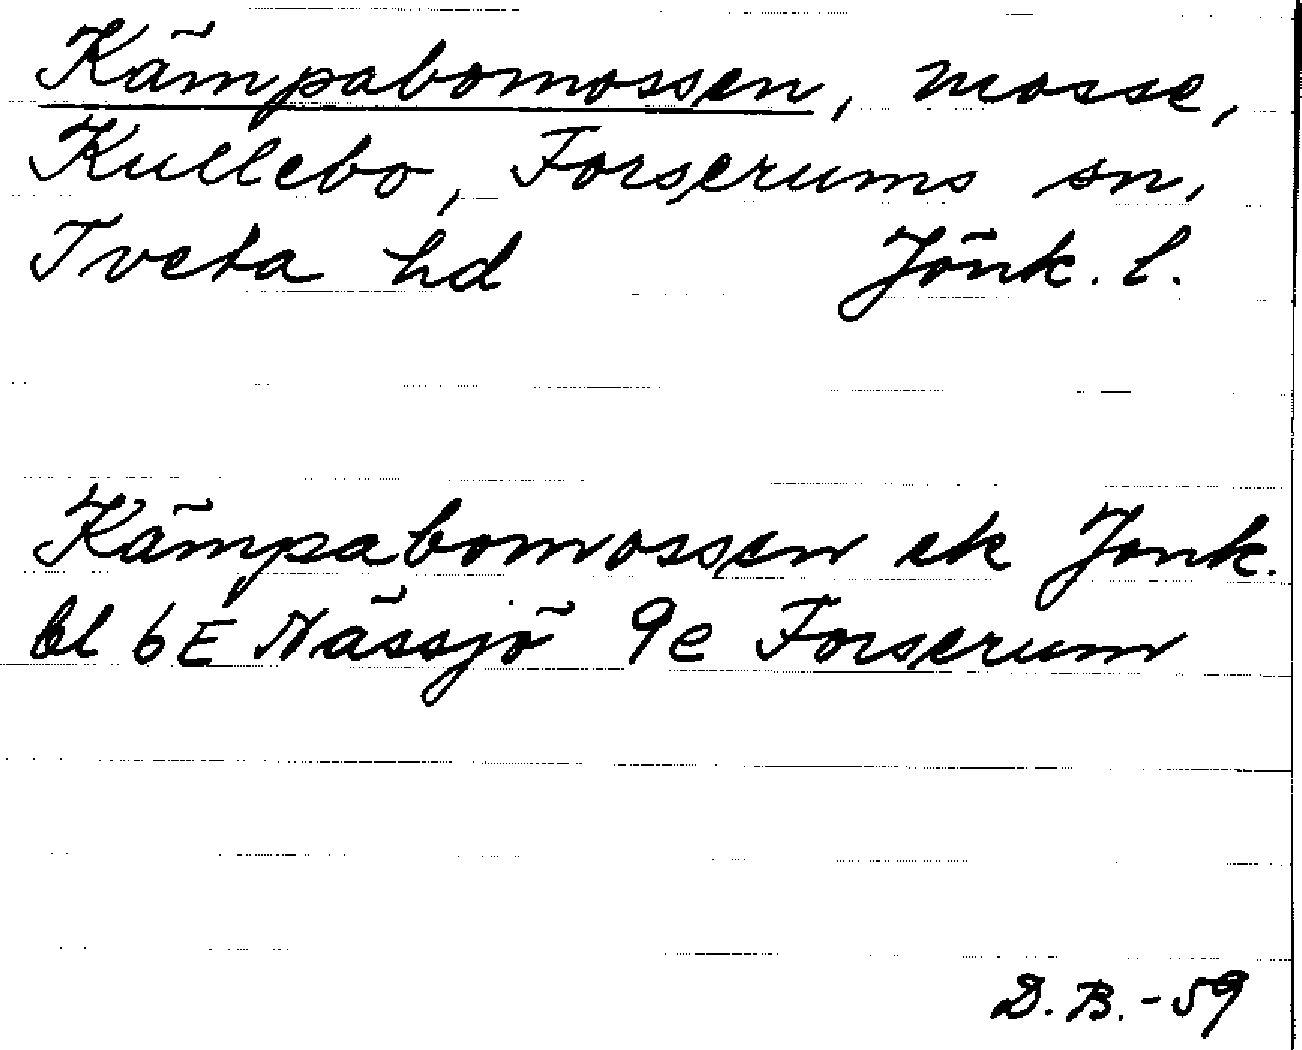 Kämpabomossen, mosse,
Kullebo, Forserums sn,
Tveta hd Jönk. l.
Kämpabomossen ek Jönk.
bl 6E Nässjö 9e Forserum
D. B. -59